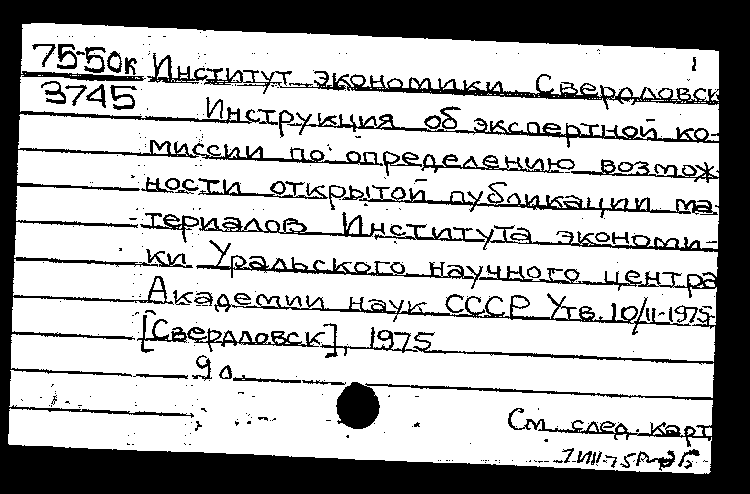 75-50к Институт экономики Свердловск
1
3745 Инструкция об экспертной ко-
миссии по определению возмож-
ности открытой публикации ма-
териалов Института экономи-
ки Уральского научного центра
Академии наук СССР Утв. 10/II-1975
[Свердловск], 1975
9 л.
См. след. карт